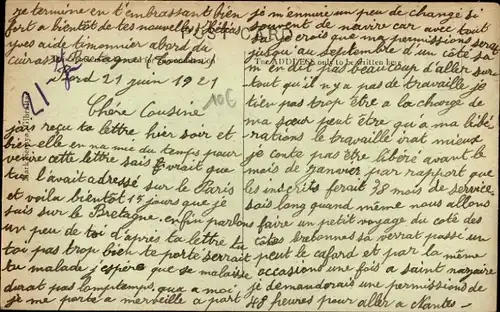 je termine en t'embrassant bien
fort a bientôt de tes nouvelles
yves aide timonnier abord du
cuirassé Bretagne (Toulon)
abord 21 juin 1921
Chére Cousine
jais reçu ta lettre hier soir et
bien elle en na mie du temps pour
venire cette lettre sais vrait que
tu l'avait adressé sur le Paris
et voila bientôt 15 jours que je
suis sur le Bretagne. enfin parlons
un peu de toi d'après ta lettre tu
toi pas trop bien te porte serrait
tu malade j'espere que se malaise
durat pas lomptemps, qua a moi,
je me porte a merveille a part
je m'ennuire un peu de changé si
souvent de navire car avec tout
sa je crois que ma permissions serat
jusqu'au septembre d'un côté sa
m en dit pas beaucoup d'aller sur
tout qu'il n'y a pas de travaille je
tien pas trop être a la charge de
ma sœur peut être qu'a ma libé
rations le travaille irat mieux
je conte pas être libéré avant le
mois de janvier par rapport que
les inscrits ferait 38 mois de service
sais long quand même nous allons
faire un petit voyage du coté des
côtes bretonnes sa verrat passe un
peut le cafard et par la même
occasions une fois a saint nazaire
je demanderais une permissions de
48 heures pour aller a Nantes –
POST CARD
The ADDRESS only to be written here
21
10€